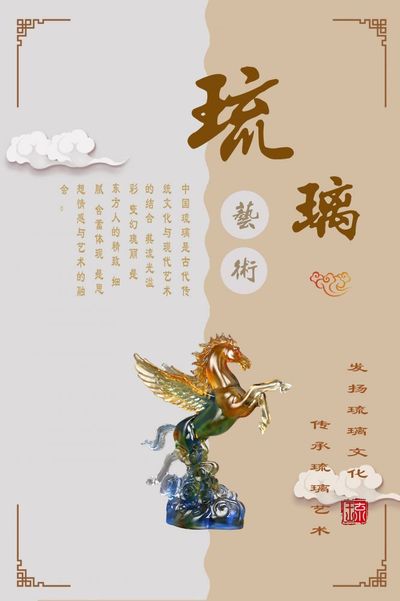 琉
璃
藝
術
中国琉璃是古代传
统文化与现代艺术
的结合 其流光溢
彩 变幻瑰丽 是
东方人的精致 细
腻 含蓄体现 是思
想情感与艺术的融
会。
发扬琉璃文化
传承琉璃艺术